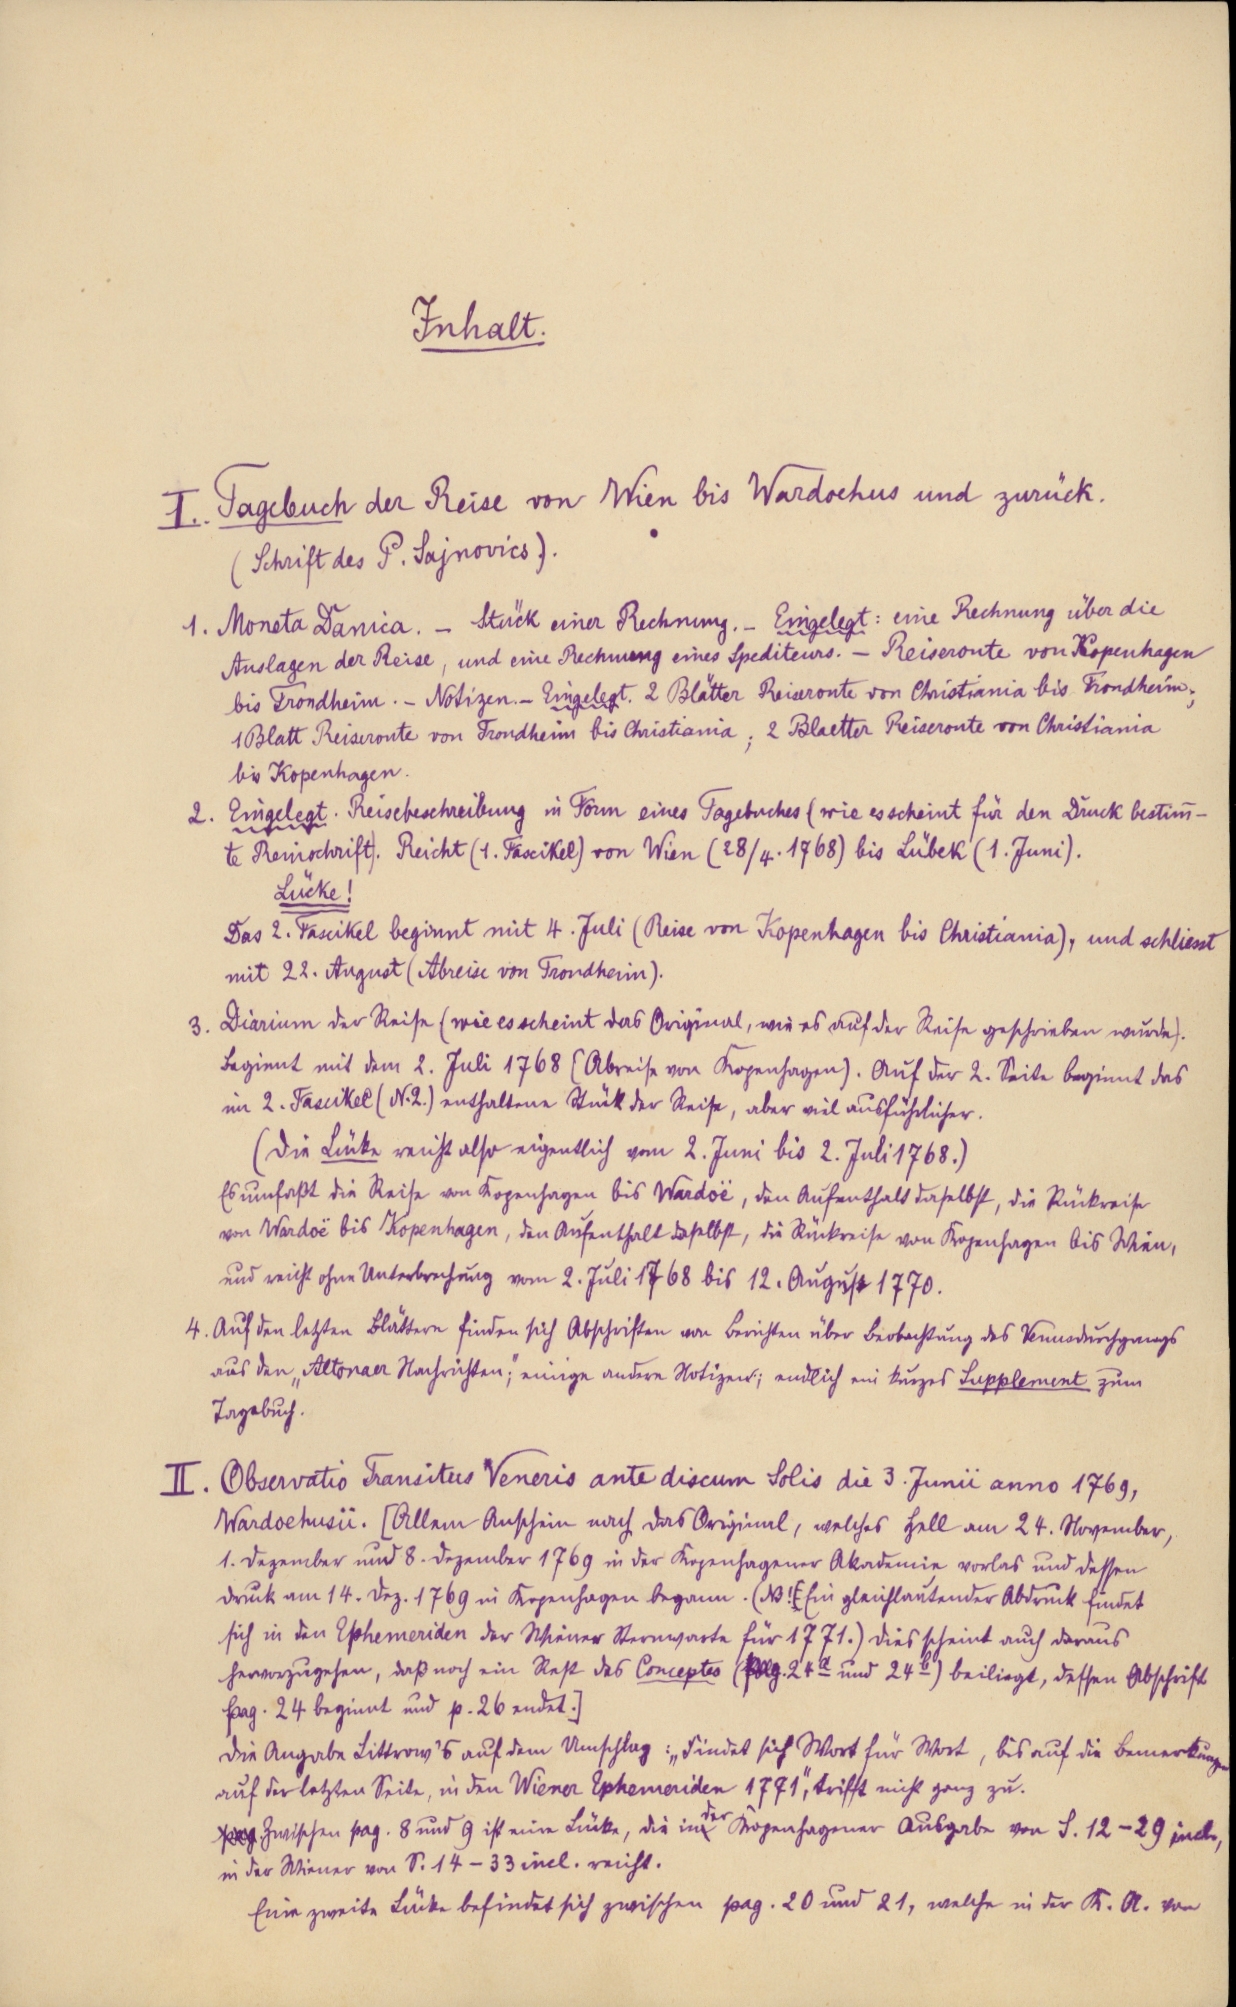 Inhalt.
I. Tagebuch der Reise von Wien bis Wardoehus und zurück.
(Schrift des P. Sajnovics).
1. Moneta Danica. – Stück einer Rechnung. – Eingelegt: eine Rechnung über die
Auslagen der Reise, und eine Rechnung eines Spediteurs. – Reiseronte von Kopenhagen
bis Trondheim. – Notizen. – Eingelegt. 2 Blätter Reiseronte von Christiania bis Trondheim;
1 Blatt Reiseronte von Trondheim bis Christiania; 2 Blaetter Reiseronte von Christiania
bis Kopenhagen.
2. Eingelegt. Reisebeschreibung in Form eines Tagebuches (wie es scheint für den Druck bestim̅-
te Reinschrift). Reicht (1. Fascikel) von Wien (28/4. 1768) bis Lübek (1. Juni).
Lücke!
Das 2. Fascikel beginnt mit 4. Juli (Reise von Kopenhagen bis Christiania), und schliesst
mit 22. August (Abreise von Trondheim).
3. Diarium der Reise (wie es scheint das Original, wie es auf der Reise geschrieben wurde).
Beginnt mit dem 2. Juli 1768 (Abreise von Kopenhagen). Auf der 2. Seite beginnt das
im 2. Fascikel (N. 2.) enthaltene Stück der Reise, aber viel ausführlicher.
(Die Lücke reicht also eigentlich vom 2. Juni bis 2. Juli 1768.)
Es umfaßt die Reise von Kopenhagen bis Wardoë, den Aufenthalt daselbst, die Rückreise
von Wardoë bis Kopenhagen, den Aufenthalt daselbst, die Rückreise von Kopenhagen bis Wien,
und reicht ohne Unterbrechung vom 2. Juli 1768 bis 12. August 1770.
4. Auf den letzten Blättern finden sich Abschriften von Berichten über Beobachtung des Venusdurchgangs
aus den „Altonaer Nachrichten“; einige andere Notizen; endlich ein kurzes Supplement zum
Tagebuch.
II. Observatio Transitus Veneris ante discum Solis die 3. Junii anno 1769,
Wardoehusii. [Allem Anschein nach das Original, welches Hell am 24. November,
1. Dezember und 8. Dezember 1769 in der Kopenhagener Akademie vorlas und dessen
Druck am 14. Dez. 1769 in Kopenhagen begann. (NB! Ein gleichlautender Abdruck findet
sich in den Ephemeriden der Wiener Sternwarte für 1771.) Dies scheint auch daraus
hervorzugehen, daß noch ein Rest des Conceptes (pag. 24 a und 24 b) beiliegt, dessen Abschrift
pag. 24 beginnt und p. 26 endet.]
Die Angabe Littrow's auf dem Umschlag: „Findet sich Wort für Wort, bis auf die Bemerkungen
auf der letzten Seite, in den Wiener Ephemeriden 1771“, trifft nicht ganz zu.
Zwischen pag. 8 und 9 ist eine Lücke, die in der Kopenhagener Ausgabe von S. 12 – 29 incl.,
in der Wiener von S. 14 – 33 incl. reicht.
Eine zweite Lücke befindet sich zwischen pag. 20 und 21, welche in der K. A. von